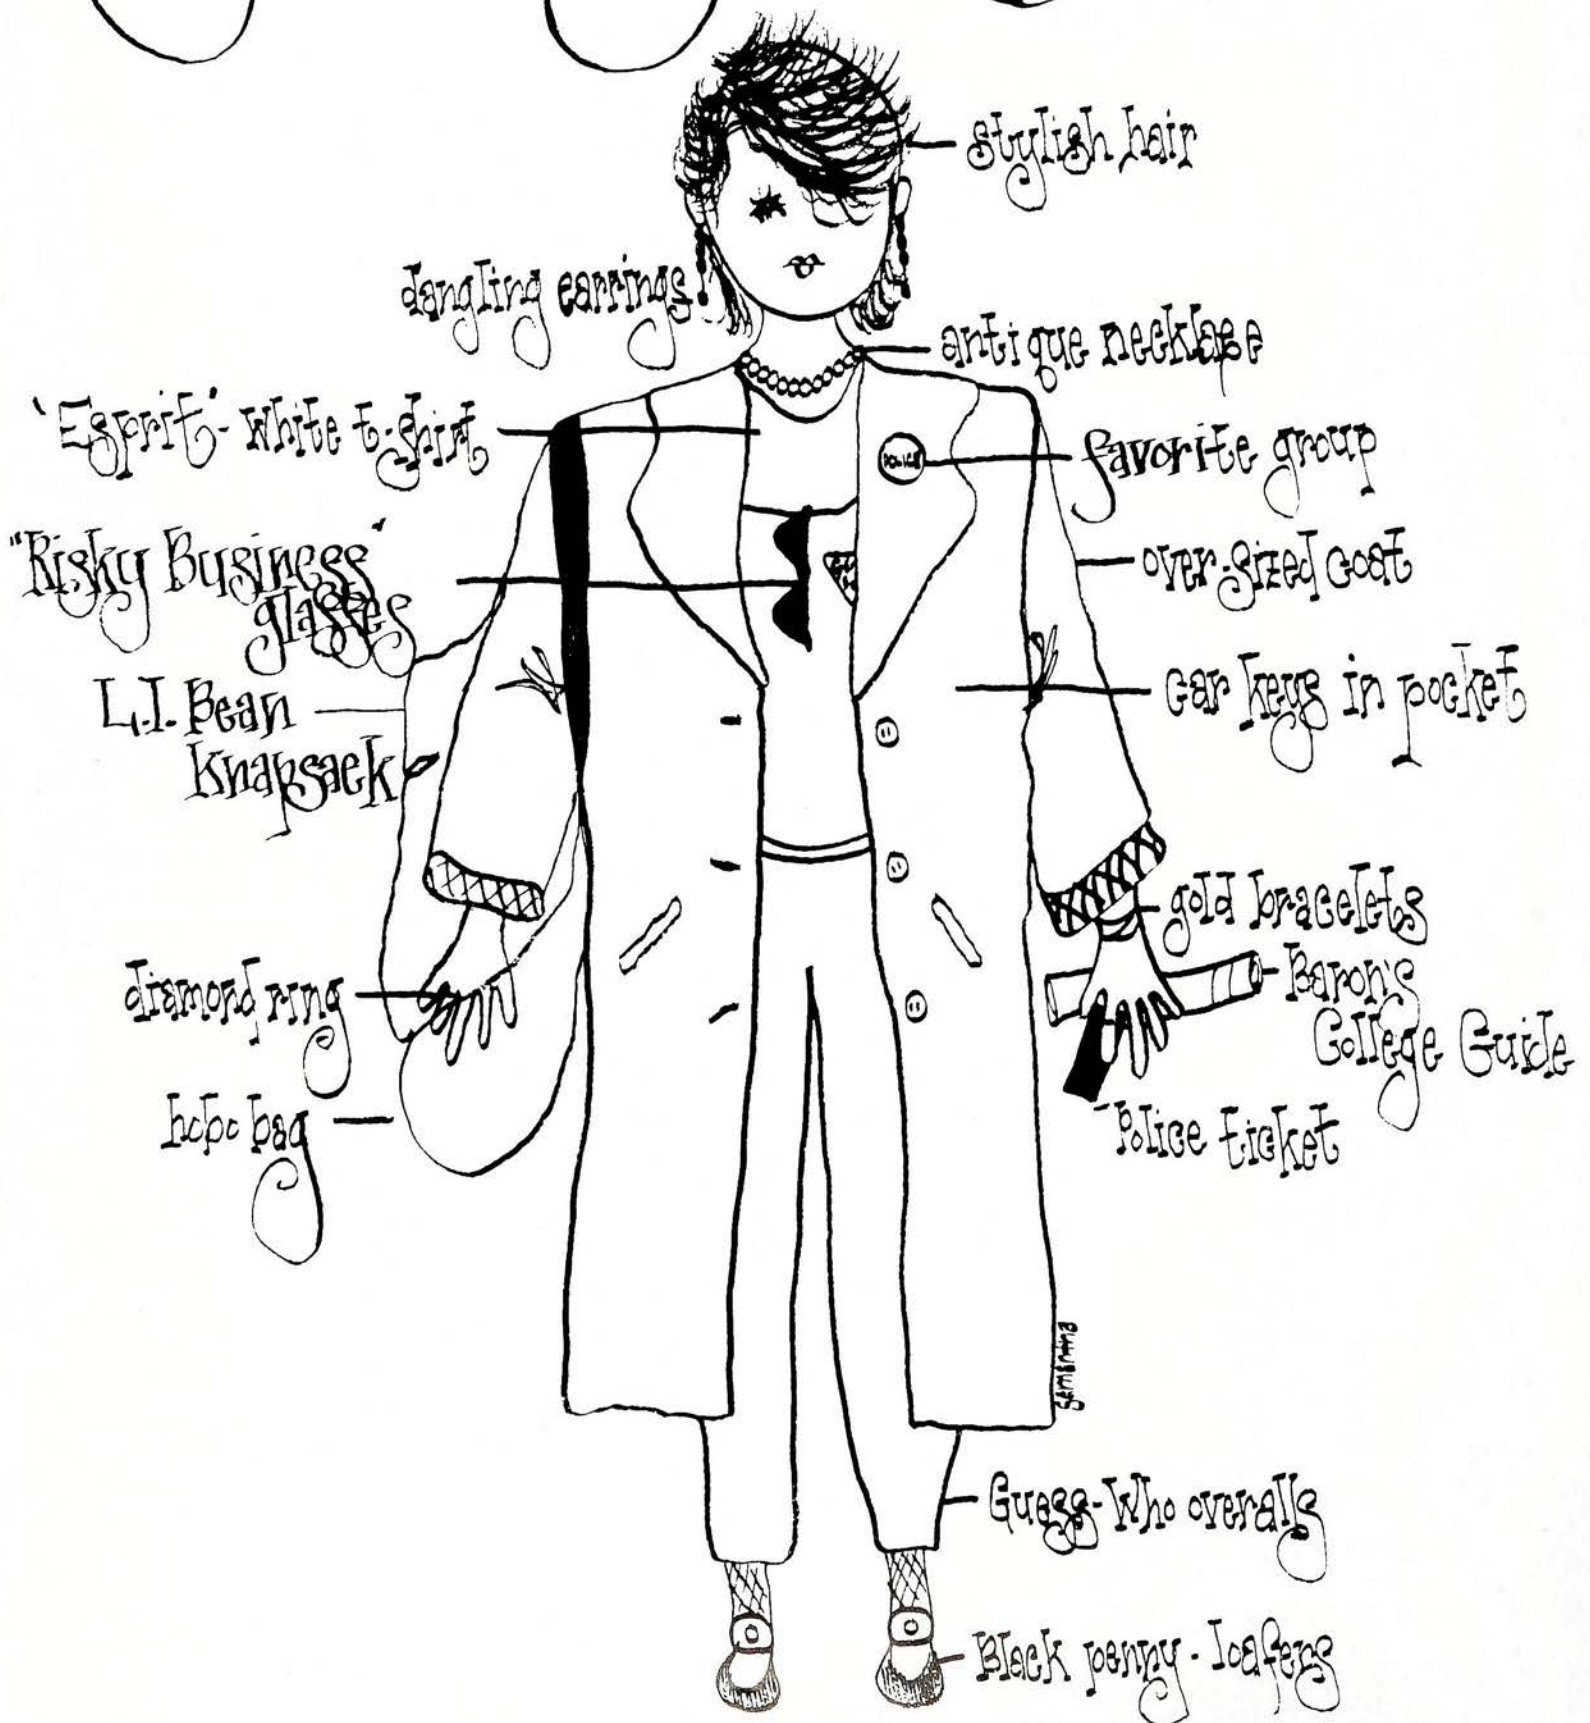 stylish hair
dangling earrings
antique necklace
'Esprit'- white t-shirt
POLICE
favorite group
"Risky Business"
glasses
over-sized coat
L.L. Bean
Knapsack
car keys in pocket
gold bracelets
diamond ring
Baron's
College Guide
hobo bag
Police ticket
Samantha
Guess-Who overalls
Black penny-loafers